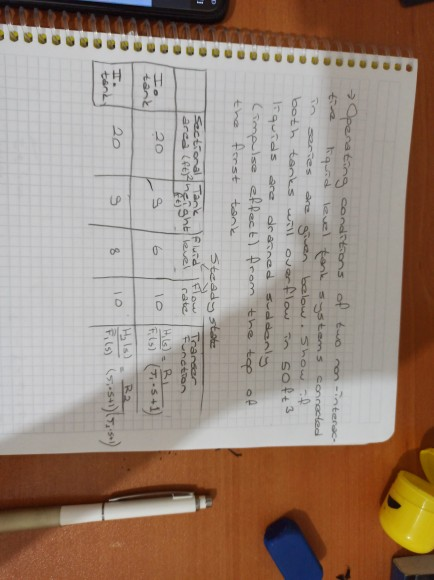 → Operating conditions of two non-interac-
tive liquid level tank systems connected
in series are given below. Show if
both tanks will overflow in 50 ft3
liquids are drained suddenly
(impulse effect) from the top of
the first tank
Steady state
Sectional area (ft)2 Tank height (ft) fluid level Flow rate Transfer Function
I. tank 20 9 6 10 H1(s)/F1(s) = R1/(τ1.s+1)
II. tank 20 9 8 10 H2(s)/F1(s) = R2/(τ1.s+1)(τ2.s+1)